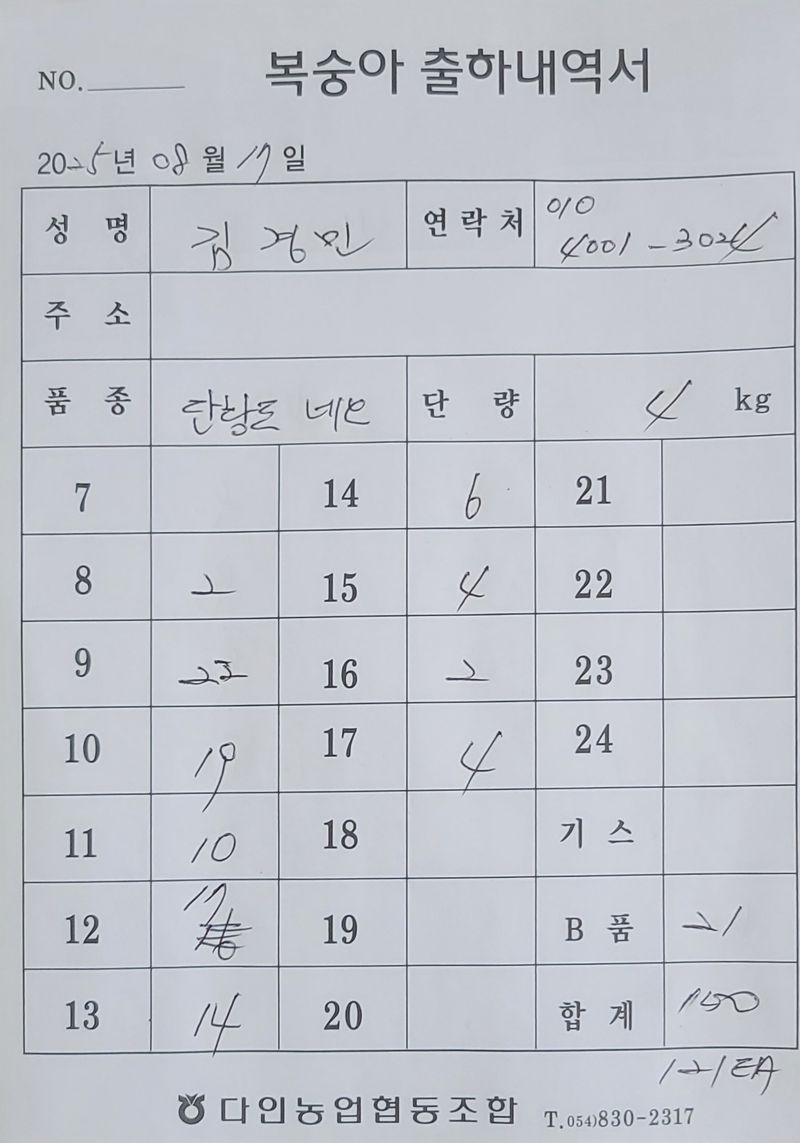 NO.
복숭아 출하내역서
2025년 08월 17일
성 명 김경민 연락처 010
4001-3024
주 소
품 종 단황도 단 량 4 kg
7 14 6 21
8 2 15 4 22
9 22 16 2 23
10 19 17 4 24
11 10 18 기 스
12 17 19 B 품 21
13 14 20 합 계 100
121EA
다인농업협동조합 T.054)830-2317